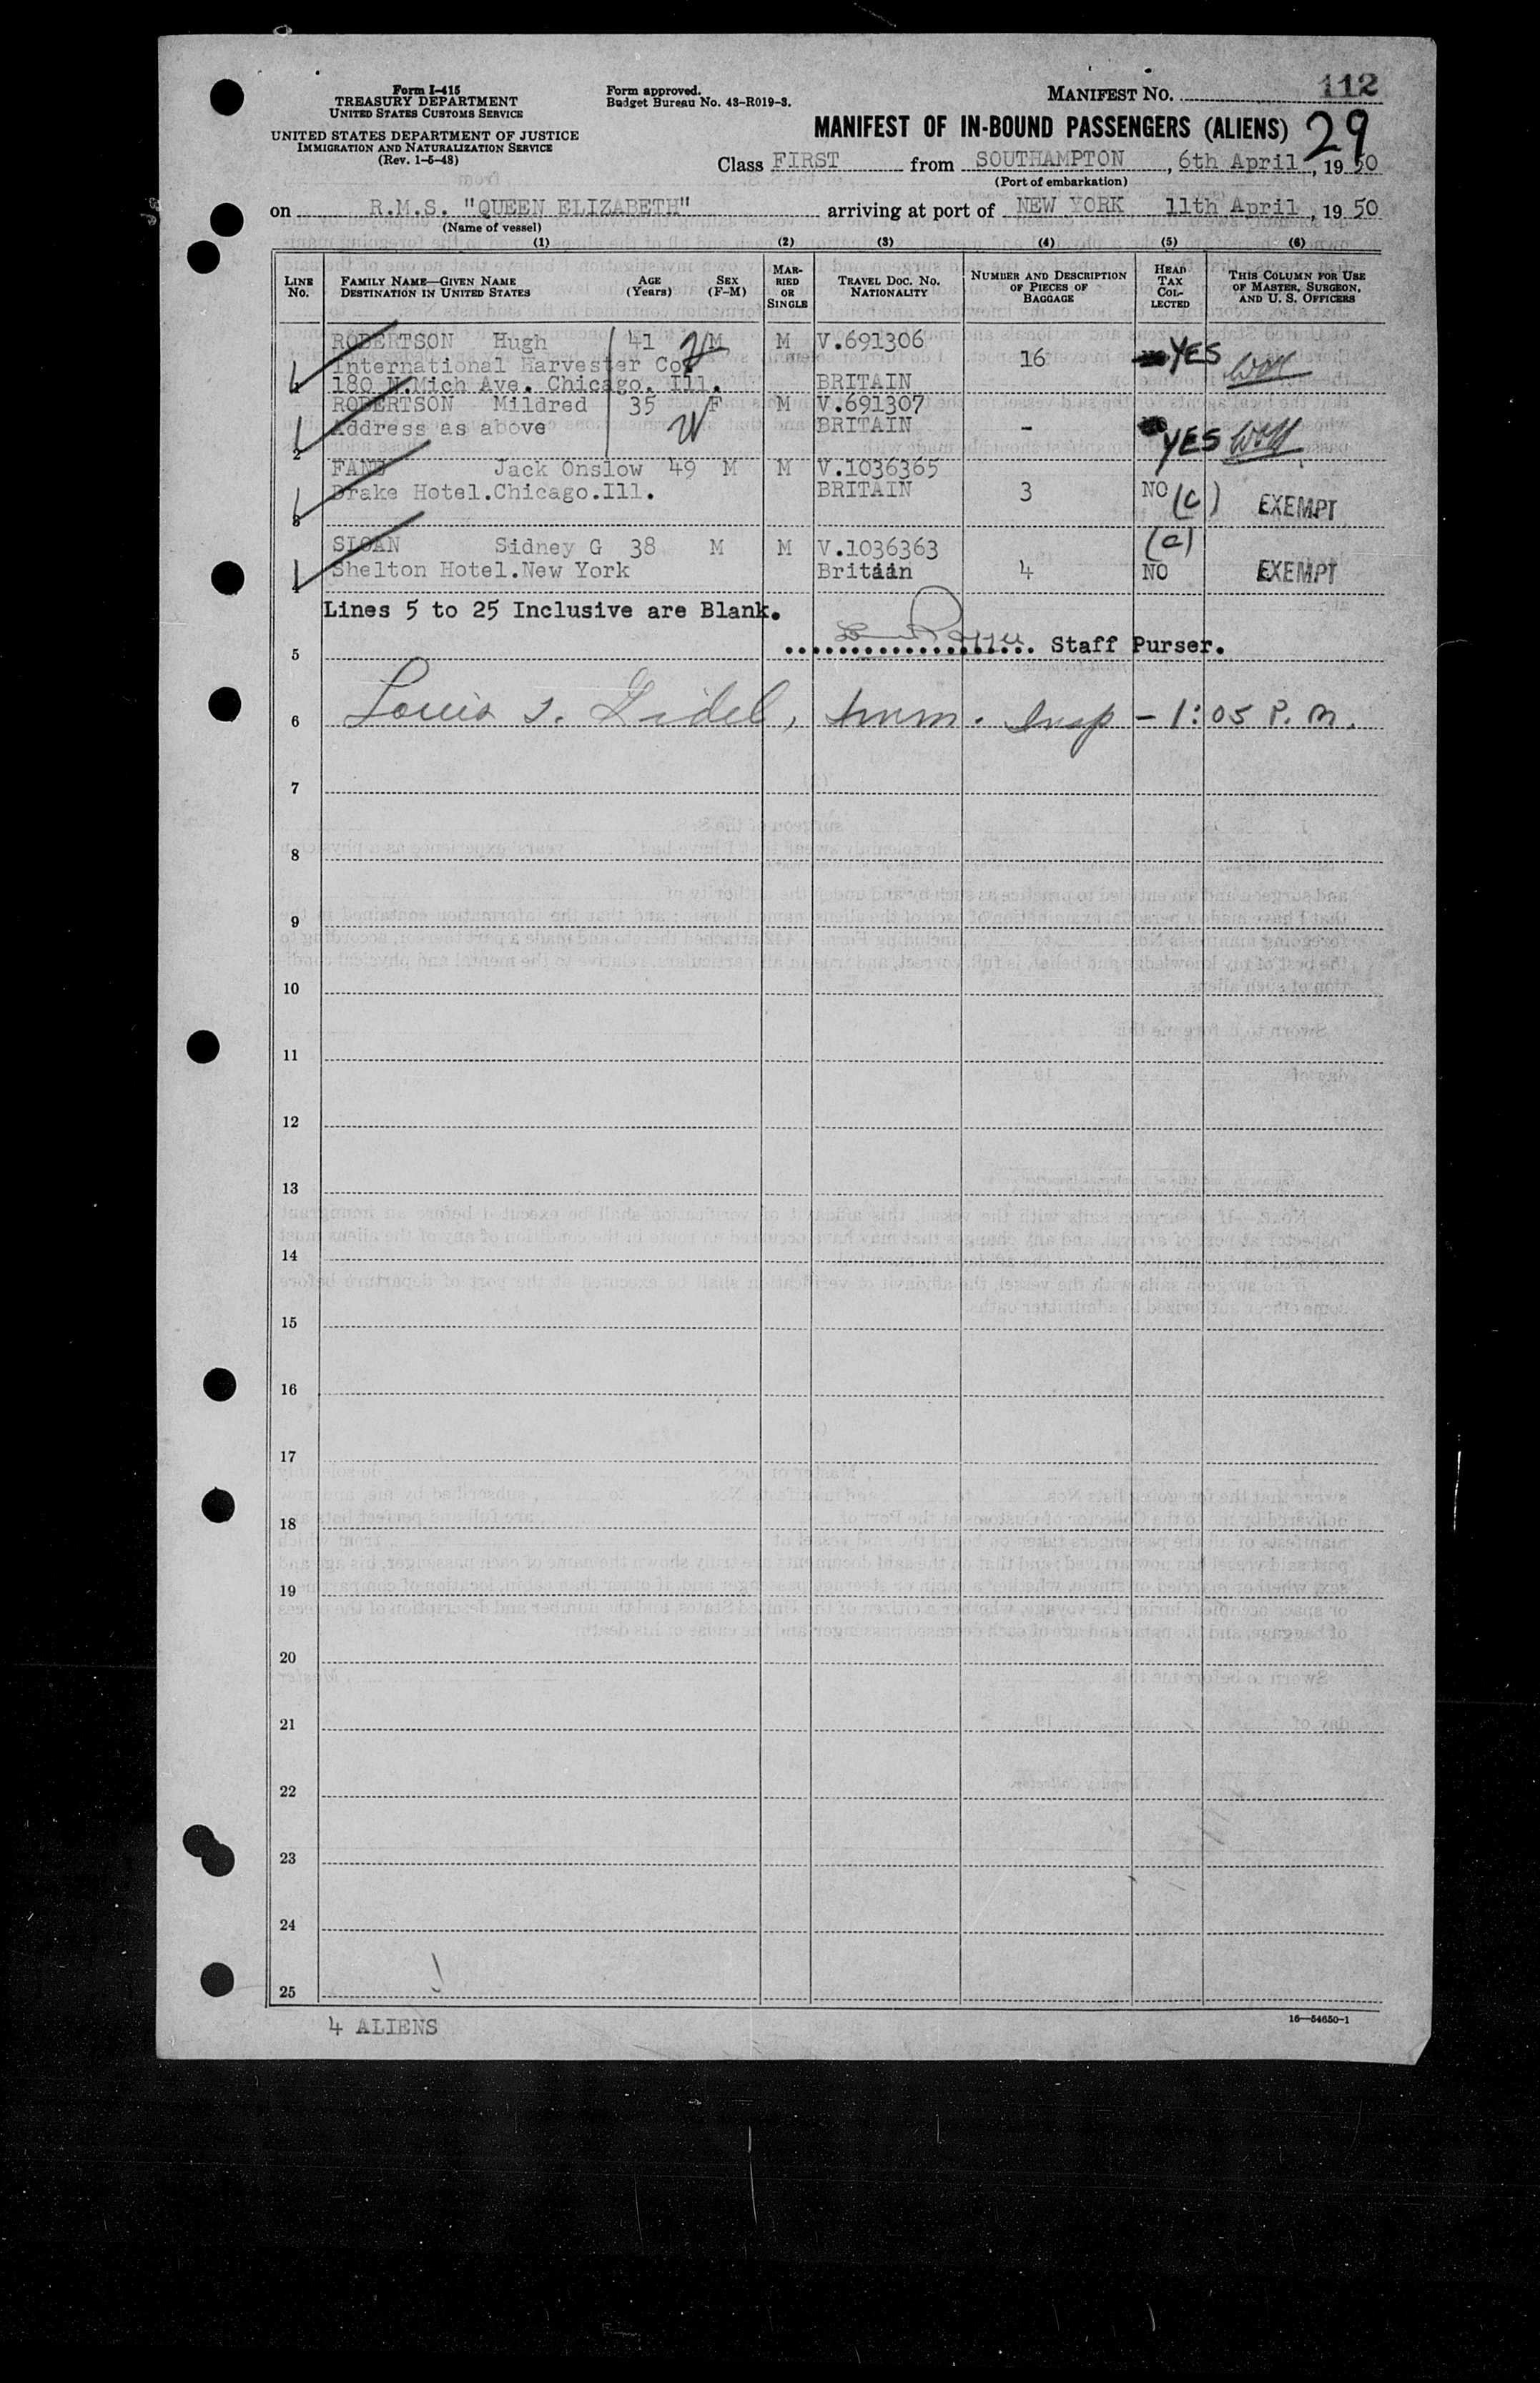 Form I-415
TREASURY DEPARTMENT
UNITED STATES CUSTOMS SERVICE
UNITED STATES DEPARTMENT OF JUSTICE
IMMIGRATION AND NATURALIZATION SERVICE
(Rev. 1-5-48)
Form approved.
Budget Bureau No. 43-R019-3.
MANIFEST NO. 112
MANIFEST OF IN-BOUND PASSENGERS (ALIENS) 29
Class FIRST from SOUTHAMPTON, 6th April, 1950
(Port of embarkation)
on R.M.S. "QUEEN ELIZABETH" arriving at port of NEW YORK 11th April, 1950
(Name of vessel)
(1) (2) (3) (4) (5) (6)
LINE No. FAMILY NAME—GIVEN NAME DESTINATION IN UNITED STATES AGE (Years) SEX (F-M) MARRIED OR SINGLE TRAVEL DOC. NO. NATIONALITY NUMBER AND DESCRIPTION OF PIECES OF BAGGAGE HEAD TAX COLLECTED THIS COLUMN FOR USE OF MASTER, SURGEON, AND U. S. OFFICERS
ROBERTSON Hugh 41 M M V.691306
International Harvester Co. 16 YES
1 180 N.Mich Ave. Chicago. Ill. BRITAIN
ROBERTSON Mildred 35 F M V.691307
Address as above BRITAIN - YES
2
FANE Jack Onslow 49 M M V.1036365
Drake Hotel.Chicago.Ill. BRITAIN 3 NO (c) EXEMPT
3
SLOAN Sidney G 38 M M V.1036363 (c)
Shelton Hotel.New York Britain 4 NO EXEMPT
4
Lines 5 to 25 Inclusive are Blank.
5 Staff Purser.
6 Louis Imm. Insp - 1:05 P.M.
7
8
9
10
11
12
13
14
15
16
17
18
19
20
21
22
23
24
25
4 ALIENS
16—54650-1